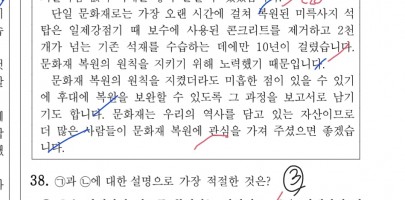 단일 문화재로는 가장 오랜 시간에 걸쳐 복원된 미륵사지 석
탑은 일제강점기 때 보수에 사용된 콘크리트를 제거하고 2천
개가 넘는 기존 석재를 수습하는 데에만 10년이 걸렸습니다.
문화재 복원의 원칙을 지키기 위해 노력했기 때문입니다.
문화재 복원의 원칙을 지켰더라도 미흡한 점이 있을 수 있기
에 후대에 복원을 보완할 수 있도록 그 과정을 보고서로 남기
기도 합니다. 문화재는 우리의 역사를 담고 있는 자산이므로
더 많은 사람들이 문화재 복원에 관심을 가져 주셨으면 좋겠습
니다.
38. ㉠과 ㉡에 대한 설명으로 가장 적절한 것은? ③